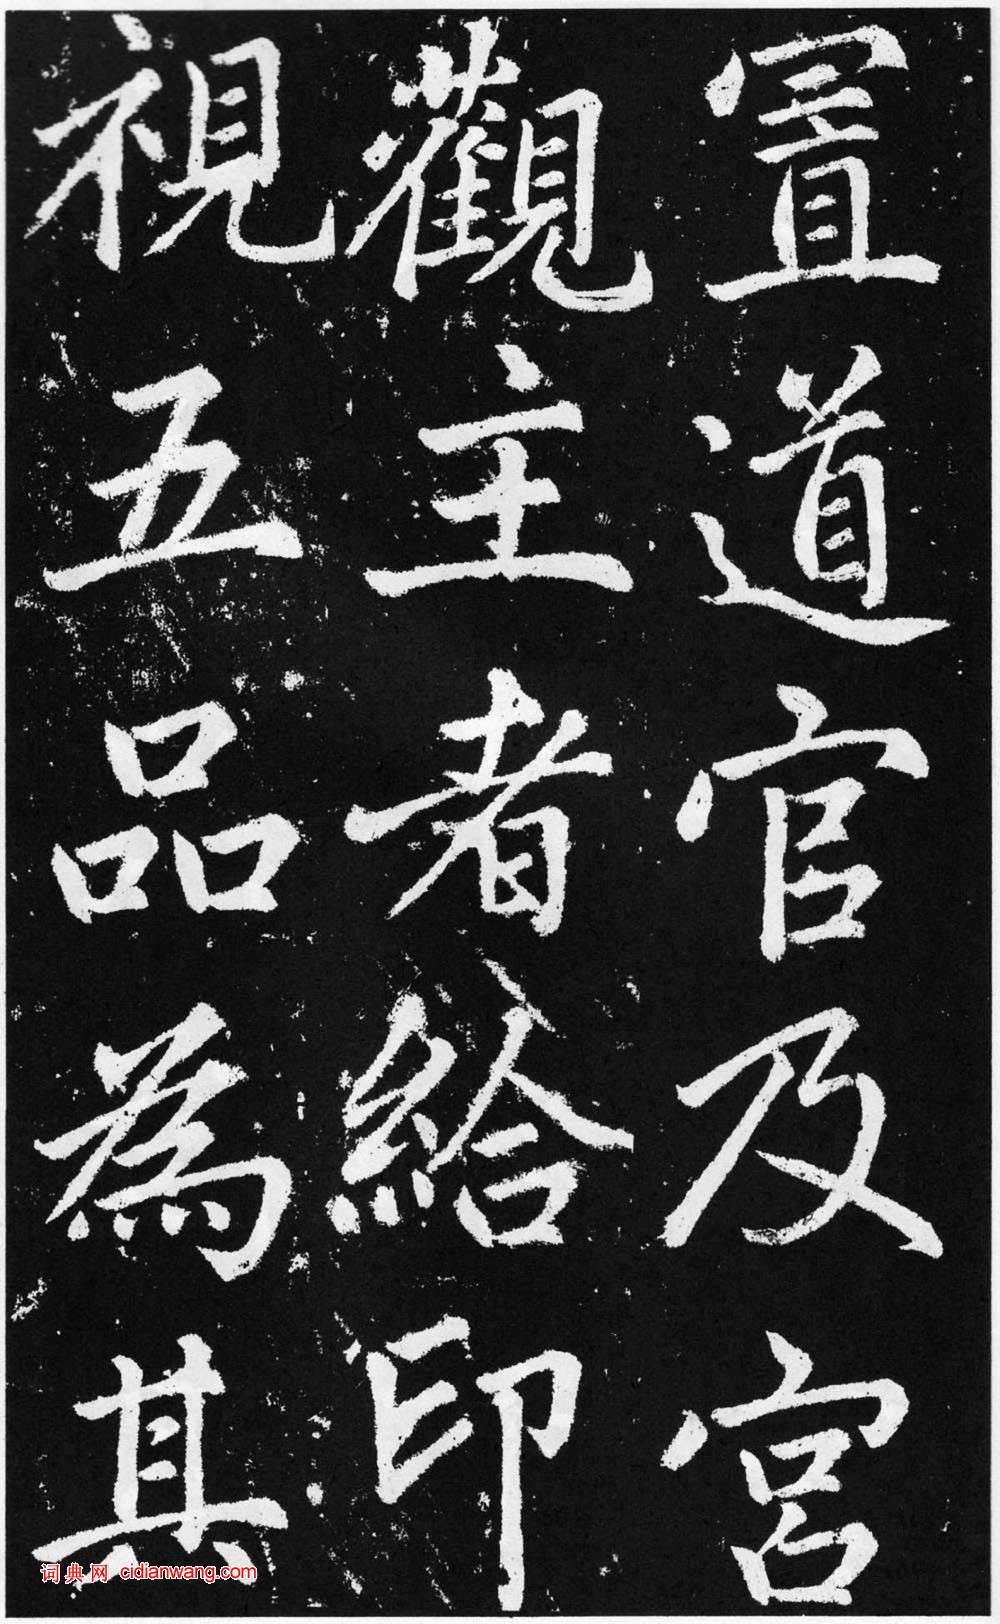 置道官及宮
觀主者給印
視五品為其
词典网 cidianwang.com